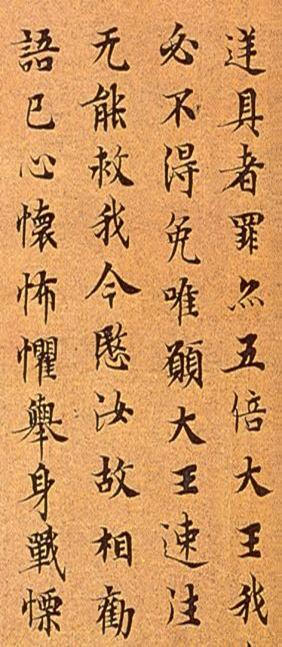 逆具者罪亦五倍大王我
必不得免唯願大王速往
无能救我今愍汝故相勸
語已心懷怖懼舉身戰慄